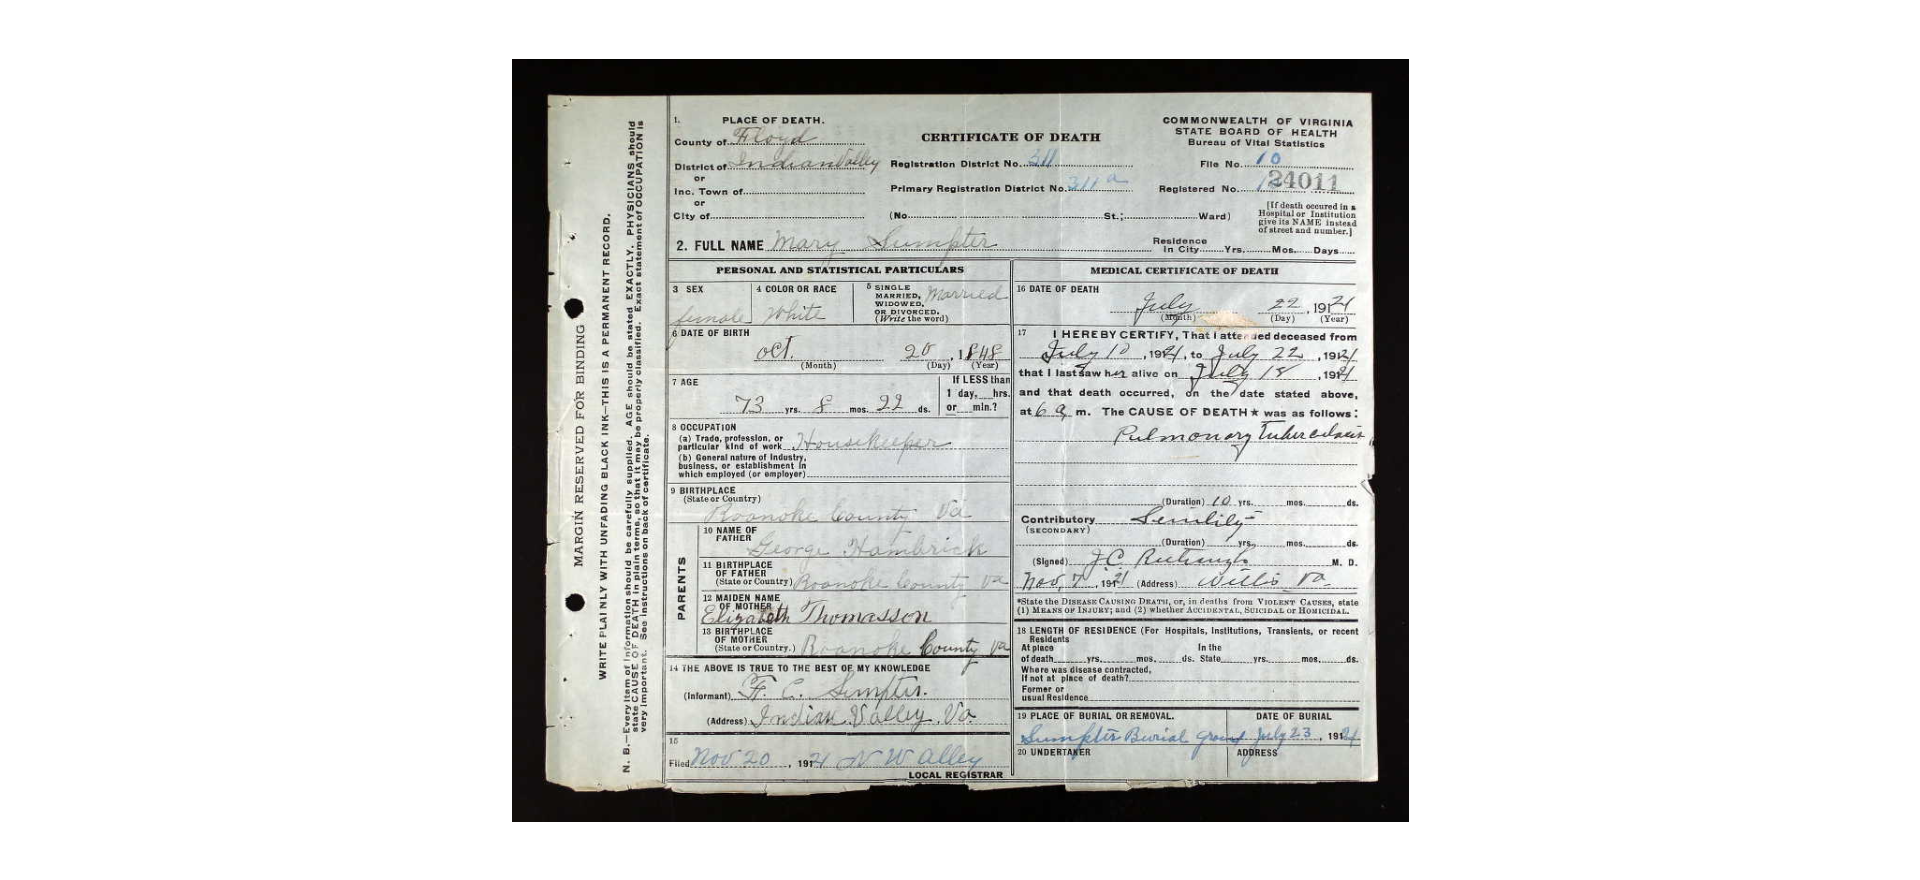 MARGIN RESERVED FOR BINDING
WRITE PLAINLY WITH UNFADING BLACK INK—THIS IS A PERMANENT RECORD.
N. B.—Every item of information should be carefully supplied. AGE should be stated EXACTLY. PHYSICIANS should
state CAUSE OF DEATH in plain terms, so that it may be properly classified. Exact statement of OCCUPATION is
very important. See instructions on back of certificate.
1. PLACE OF DEATH.
County of Floyd
District of Indian Valley
or
Inc. Town of
or
City of
CERTIFICATE OF DEATH
Registration District No. 311
Primary Registration District No. 311 a
(No. St.; Ward)
COMMONWEALTH OF VIRGINIA
STATE BOARD OF HEALTH
Bureau of Vital Statistics
File No. 10
Registered No. 24011
[If death occured in a
Hospital or Institution
give its NAME instead
of street and number.]
2. FULL NAME Mary Sumpter
Residence
In City Yrs. Mos. Days
PERSONAL AND STATISTICAL PARTICULARS
3 SEX
female
4 COLOR OR RACE
White
5 SINGLE
MARRIED,
WIDOWED,
OR DIVORCED.
(Write the word)
Married
6 DATE OF BIRTH
Oct. 20, 1848
(Month) (Day) (Year)
7 AGE
73 yrs. 8 mos. 22 ds.
If LESS than
1 day, hrs.
or min.?
8 OCCUPATION
(a) Trade, profession, or
particular kind of work Housekeeper
(b) General nature of Industry,
business, or establishment in
which employed (or employer)
9 BIRTHPLACE
(State or Country)
Roanoke County Va
PARENTS
10 NAME OF
FATHER
George Hambrick
11 BIRTHPLACE
OF FATHER
(State or Country) Roanoke County Va
12 MAIDEN NAME
OF MOTHER
Elizabeth Thomasson
13 BIRTHPLACE
OF MOTHER
(State or Country.) Roanoke County Va
14 THE ABOVE IS TRUE TO THE BEST OF MY KNOWLEDGE
(Informant) F. C. Sumpter.
(Address) Indian Valley, Va.
15
Filed Nov 20, 1921 N W Alley
LOCAL REGISTRAR
MEDICAL CERTIFICATE OF DEATH
16 DATE OF DEATH
July 22, 1921
(Month) (Day) (Year)
17 I HEREBY CERTIFY, That I attended deceased from
July 10, 1921, to July 22, 1921
that I last saw her alive on July 18, 1921
and that death occurred, on the date stated above,
at 6 a m. The CAUSE OF DEATH★ was as follows:
Pulmonary Tuberculosis
(Duration) 10 yrs. mos. ds.
Contributory Senility
(SECONDARY)
(Duration) yrs. mos. ds.
(Signed) J.C. M. D.
Nov. 7, 1921 (Address) Willis Va
*State the DISEASE CAUSING DEATH, or, in deaths from VIOLENT CAUSES, state
(1) MEANS OF INJURY; and (2) whether ACCIDENTAL, SUICIDAL or HOMICIDAL.
18 LENGTH OF RESIDENCE (For Hospitals, Institutions, Transients, or recent
Residents
At place In the
of death yrs. mos. ds. State yrs. mos. ds.
Where was disease contracted,
If not at place of death?
Former or
usual Residence
19 PLACE OF BURIAL OR REMOVAL.
Sumpter Burial ground
DATE OF BURIAL
July 23, 1921
20 UNDERTAKER
ADDRESS